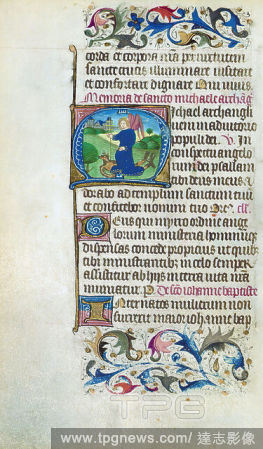 corda et corpora nrã per virtutem
sancte crucis illuminare visitare
et confortare dignare Qui vivis
Memoria de sancto michaele archãg
Michael archangli
veni in adiutorio
populi dei. V. In
conspectu angelo
rum psallam
tibi deus meus
dorabo ad templum sanctum tuũ
et confitebor nomini tuo Ore.
Deus qui miro ordine ange
lorum ministeria hominũqz
dispensas concede propicius ut quibz
tibi ministrantibz in celo semper
assistitur ab hijs in terra vita nrã
muniatur. P. De sco iohanne baptiste
Inter natos mulierum non
surrexit maior ioh'anne bap
TPG
www.tpgnews.com / 達志影像